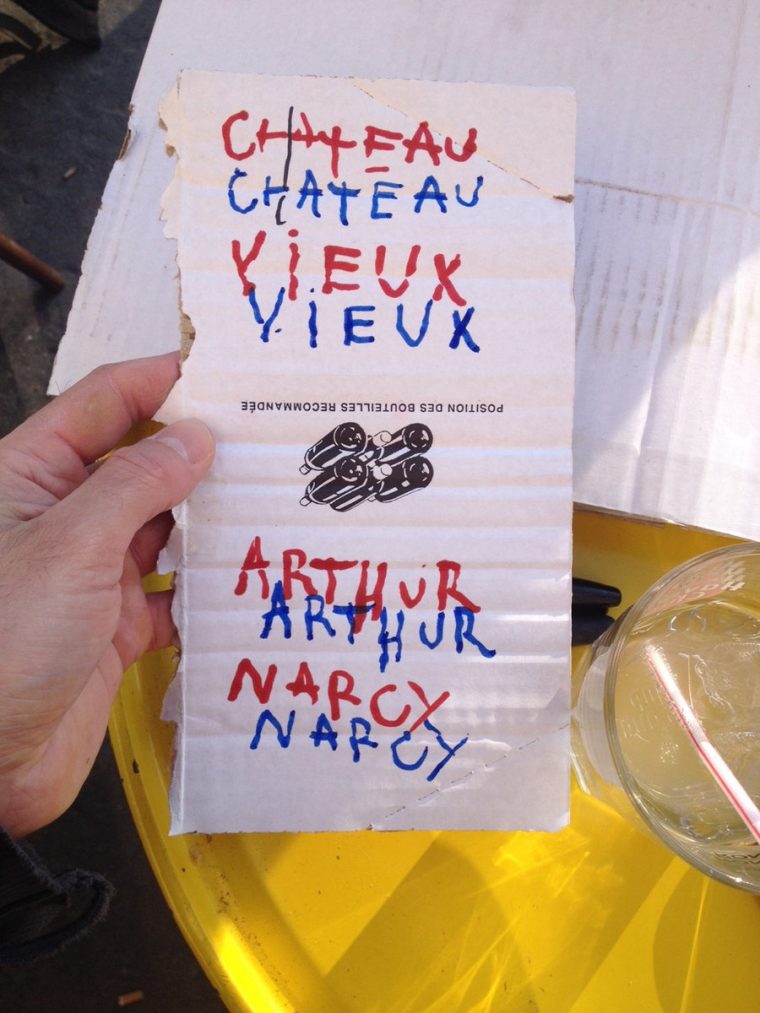 CHATEAU
CHATEAU
ViEUX
ViEUX
POSITION DES BOUTEILLES RECOMMANDÉE
ARTHUR
ARTHUR
NARCY
NARCY